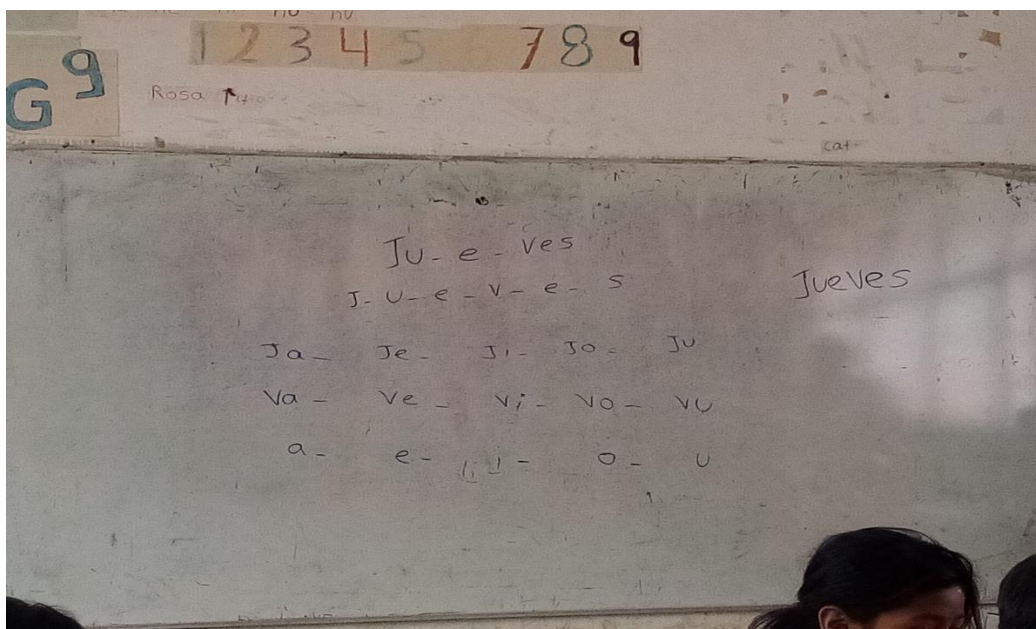 nu nu
G g
1 2 3 4 5 7 8 9
Rosa
cat
Ju - e - ves
J - u - e - v - e - s
Jueves
Ja - Je - Ji - Jo - Ju
Va - Ve - Vi - Vo - Vu
a - e - i - o - u